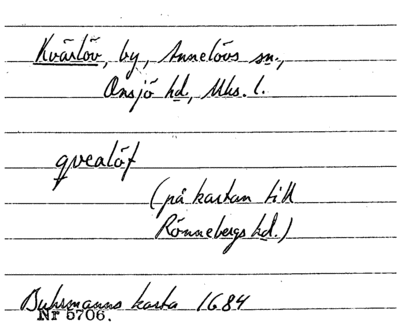 Kvärlöv, by, Annelövs sn.,
Onsjö hd., Mks. l.
qvealöf
(på kartan till
Rönnebergs hd.)
Buhrmanns karta 1684
Nr 5706.